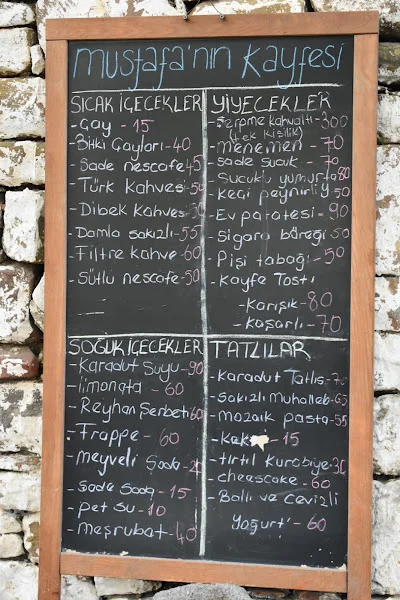 mustafa'nın kayfesi
SICAK İÇECEKLER
- Çay - 15
- Bitki Çayları - 40
- Sade nescafe 45
- Türk kahvesi 50
- Dibek kahvesi 50
- Damla sakızlı - 55
- Filtre kahve - 60
- Sütlü nescafe - 50
YİYECEKLER
- Serpme kahvaltı - 300
(Tek kişilik)
- menemen - 70
- sade sucuk - 70
- Sucuklu yumurta 80
- Keçi peyniri 50
- Ev patatesi - 90
- Sigara böreği - 50
- Pişi tabağı - 50
- Kayfe Tostı
- Karışık - 80
- Kaşarlı - 70
SOĞUK İÇECEKLER
- Karadut Suyu - 90
- limonata - 60
- Reyhan Şerbeti 60
- Frappe - 60
- meyveli Soda -
- Sade Soda - 15
- pet su - 10
- meşrubat - 40
TATZILAR
- Karadut Tatlısı -
- Sakızlı Muhallebi 65
- mozaik pasta - 55
- Kek - 15
- tırtıl kurabiye - 30
- cheescake - 60
- Ballı ve Cevizli
Yoğurt - 60